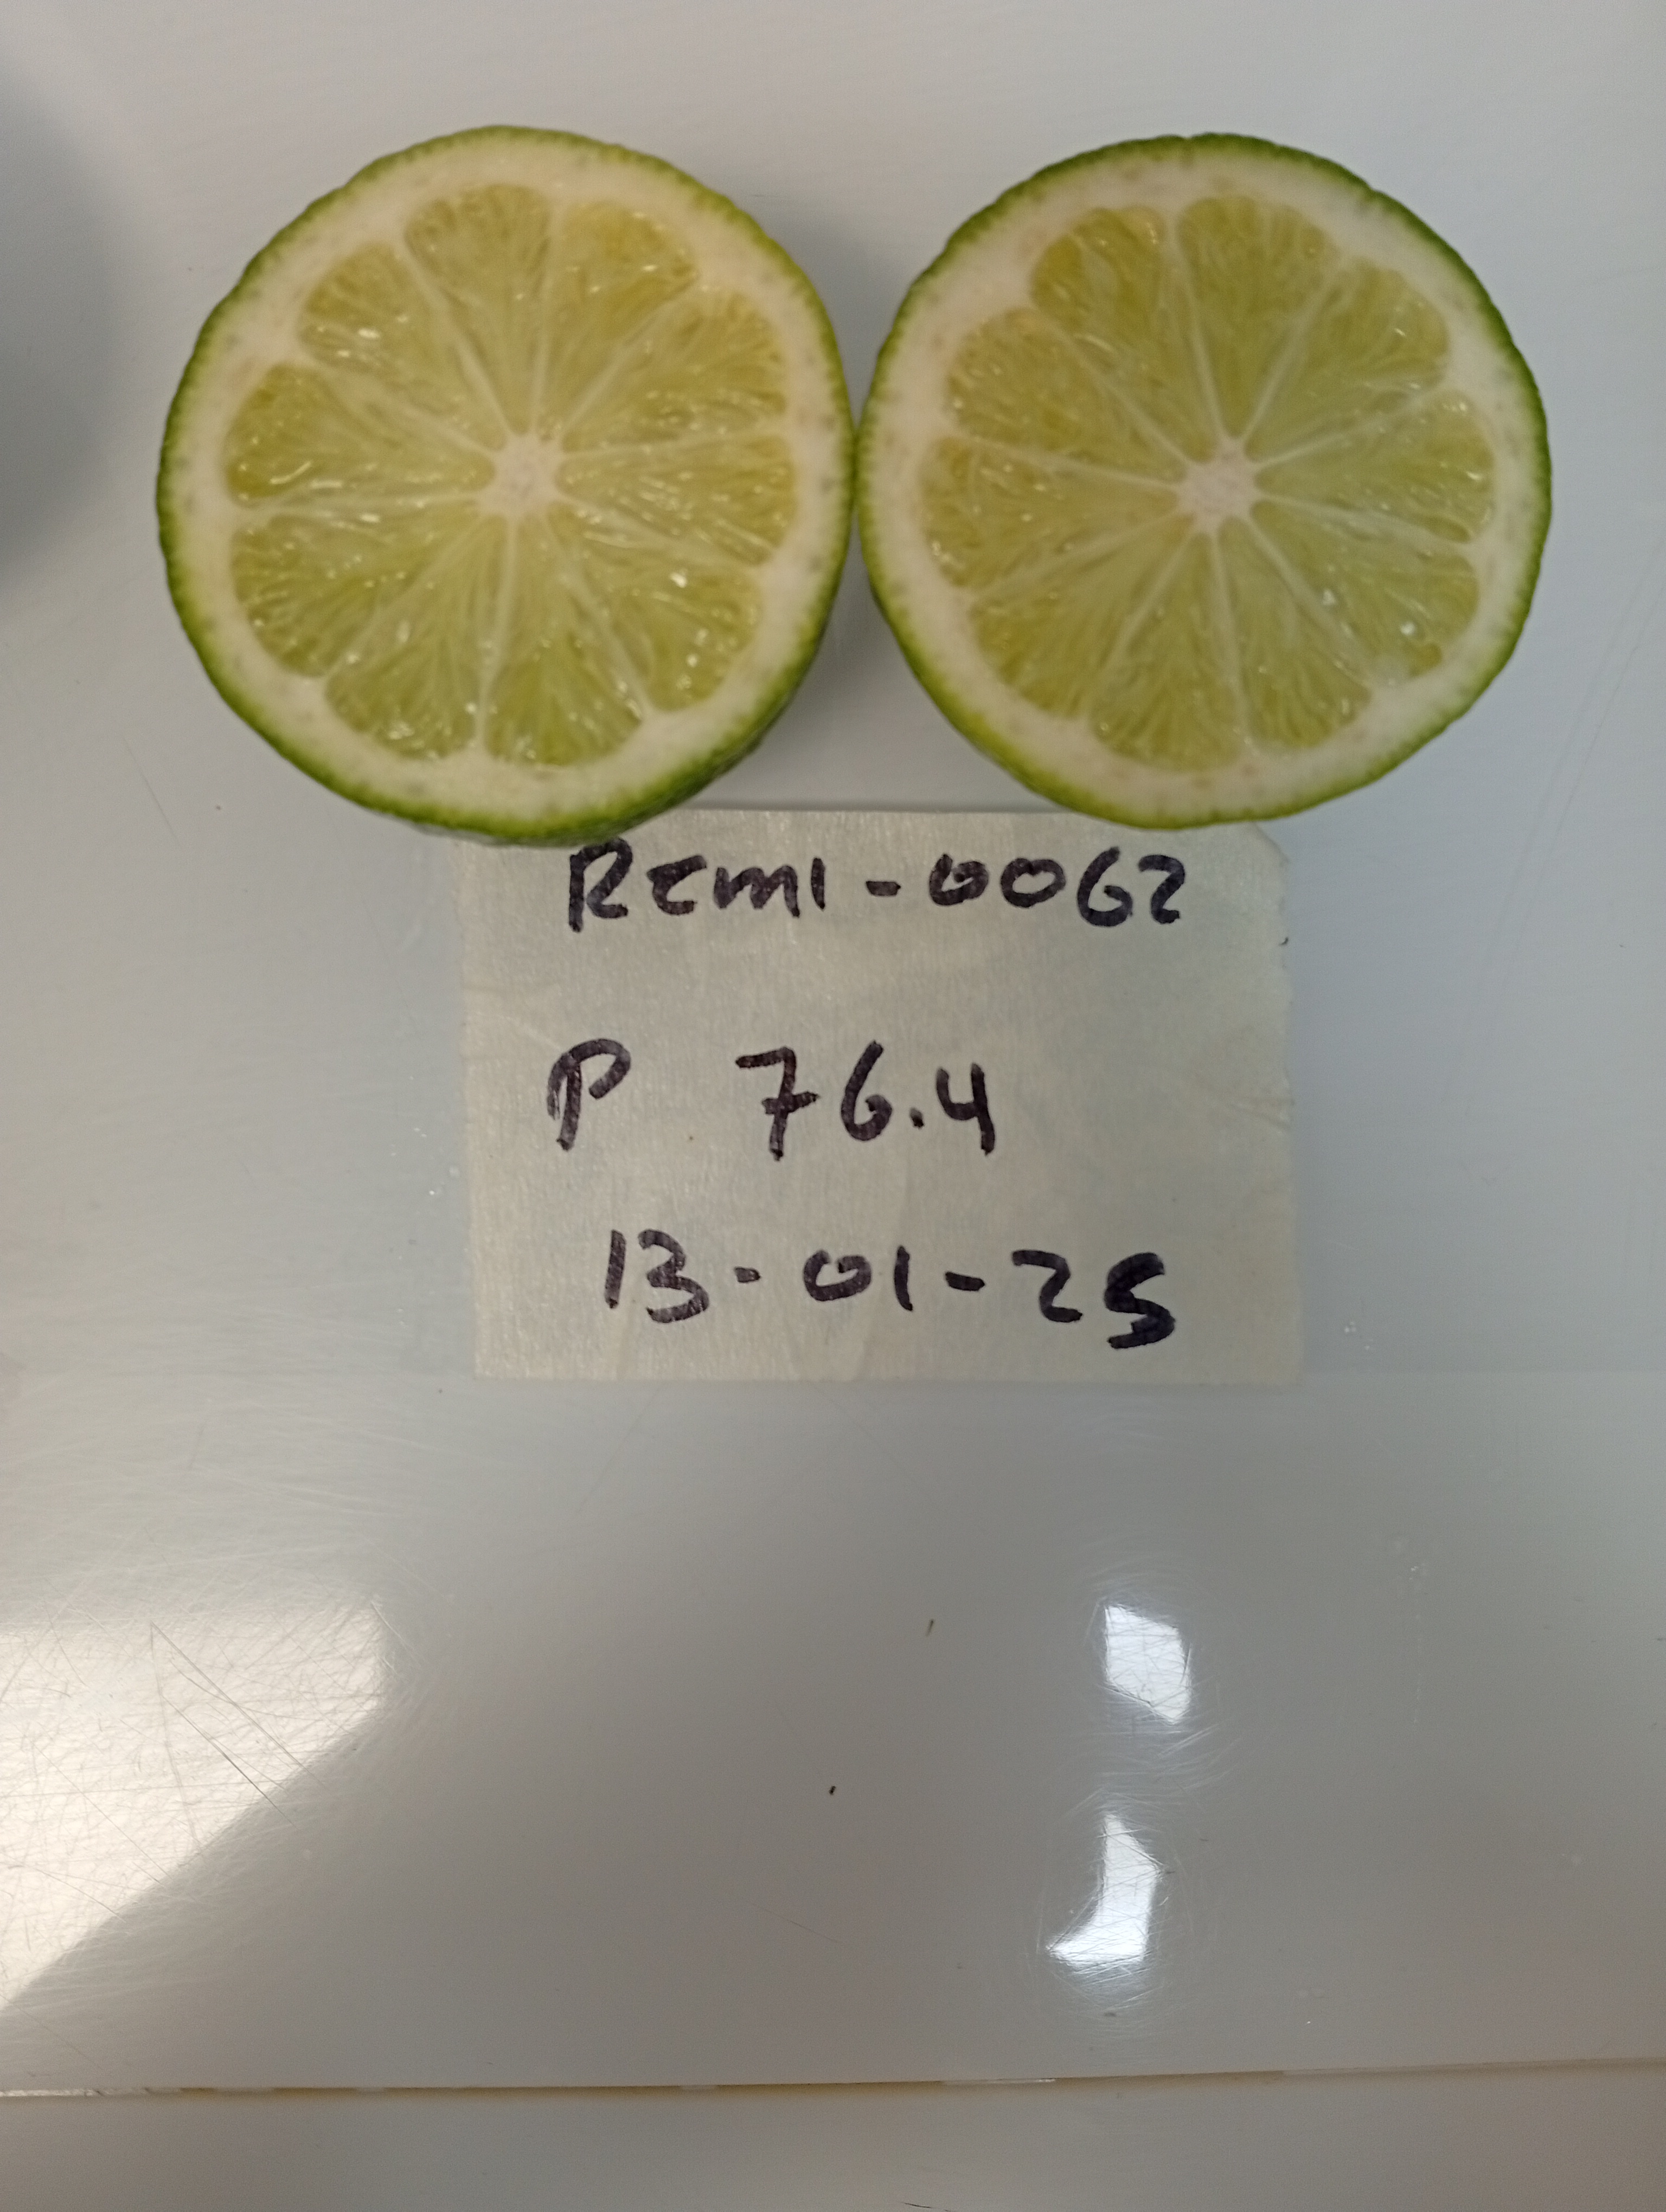 RCM1-0062
P 76.4
13-01-25